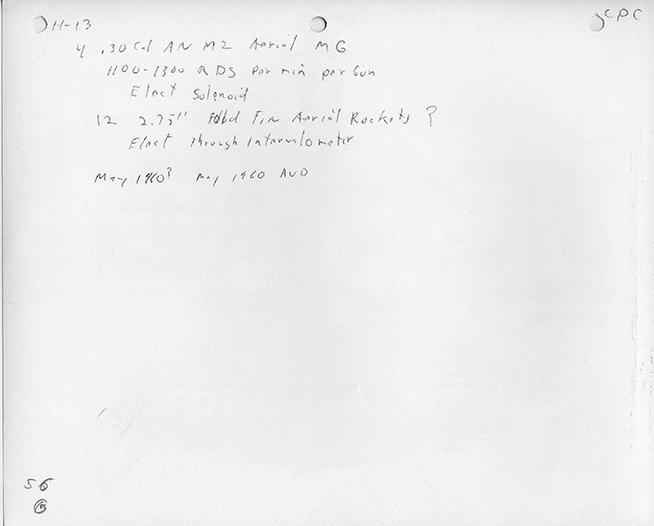 H-13
CPC
4 .30 Cal AN M2 Aerial MG
1100-1300 RDS Per min per Gun
Elect Solenoid
12 2.75" Fold Fin Aerial Rockets ?
Elect Through Intervalometer
May 1960? May 1960 AVD
(5)
56